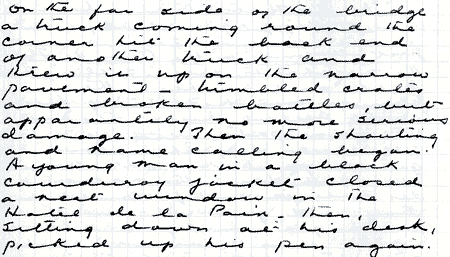 On the far side of the bridge
a truck coming round the
corner hit the back end
of another truck and
threw it up on the narrow
pavement - tumbled crates
and broken bottles, but
apparently no more serious
damage. Then the shouting
and name calling began.
A young man in a black
corduroy jacket closed
a next window in the
Hotel de la Paix. Then,
sitting down at his desk,
picked up his pen again.